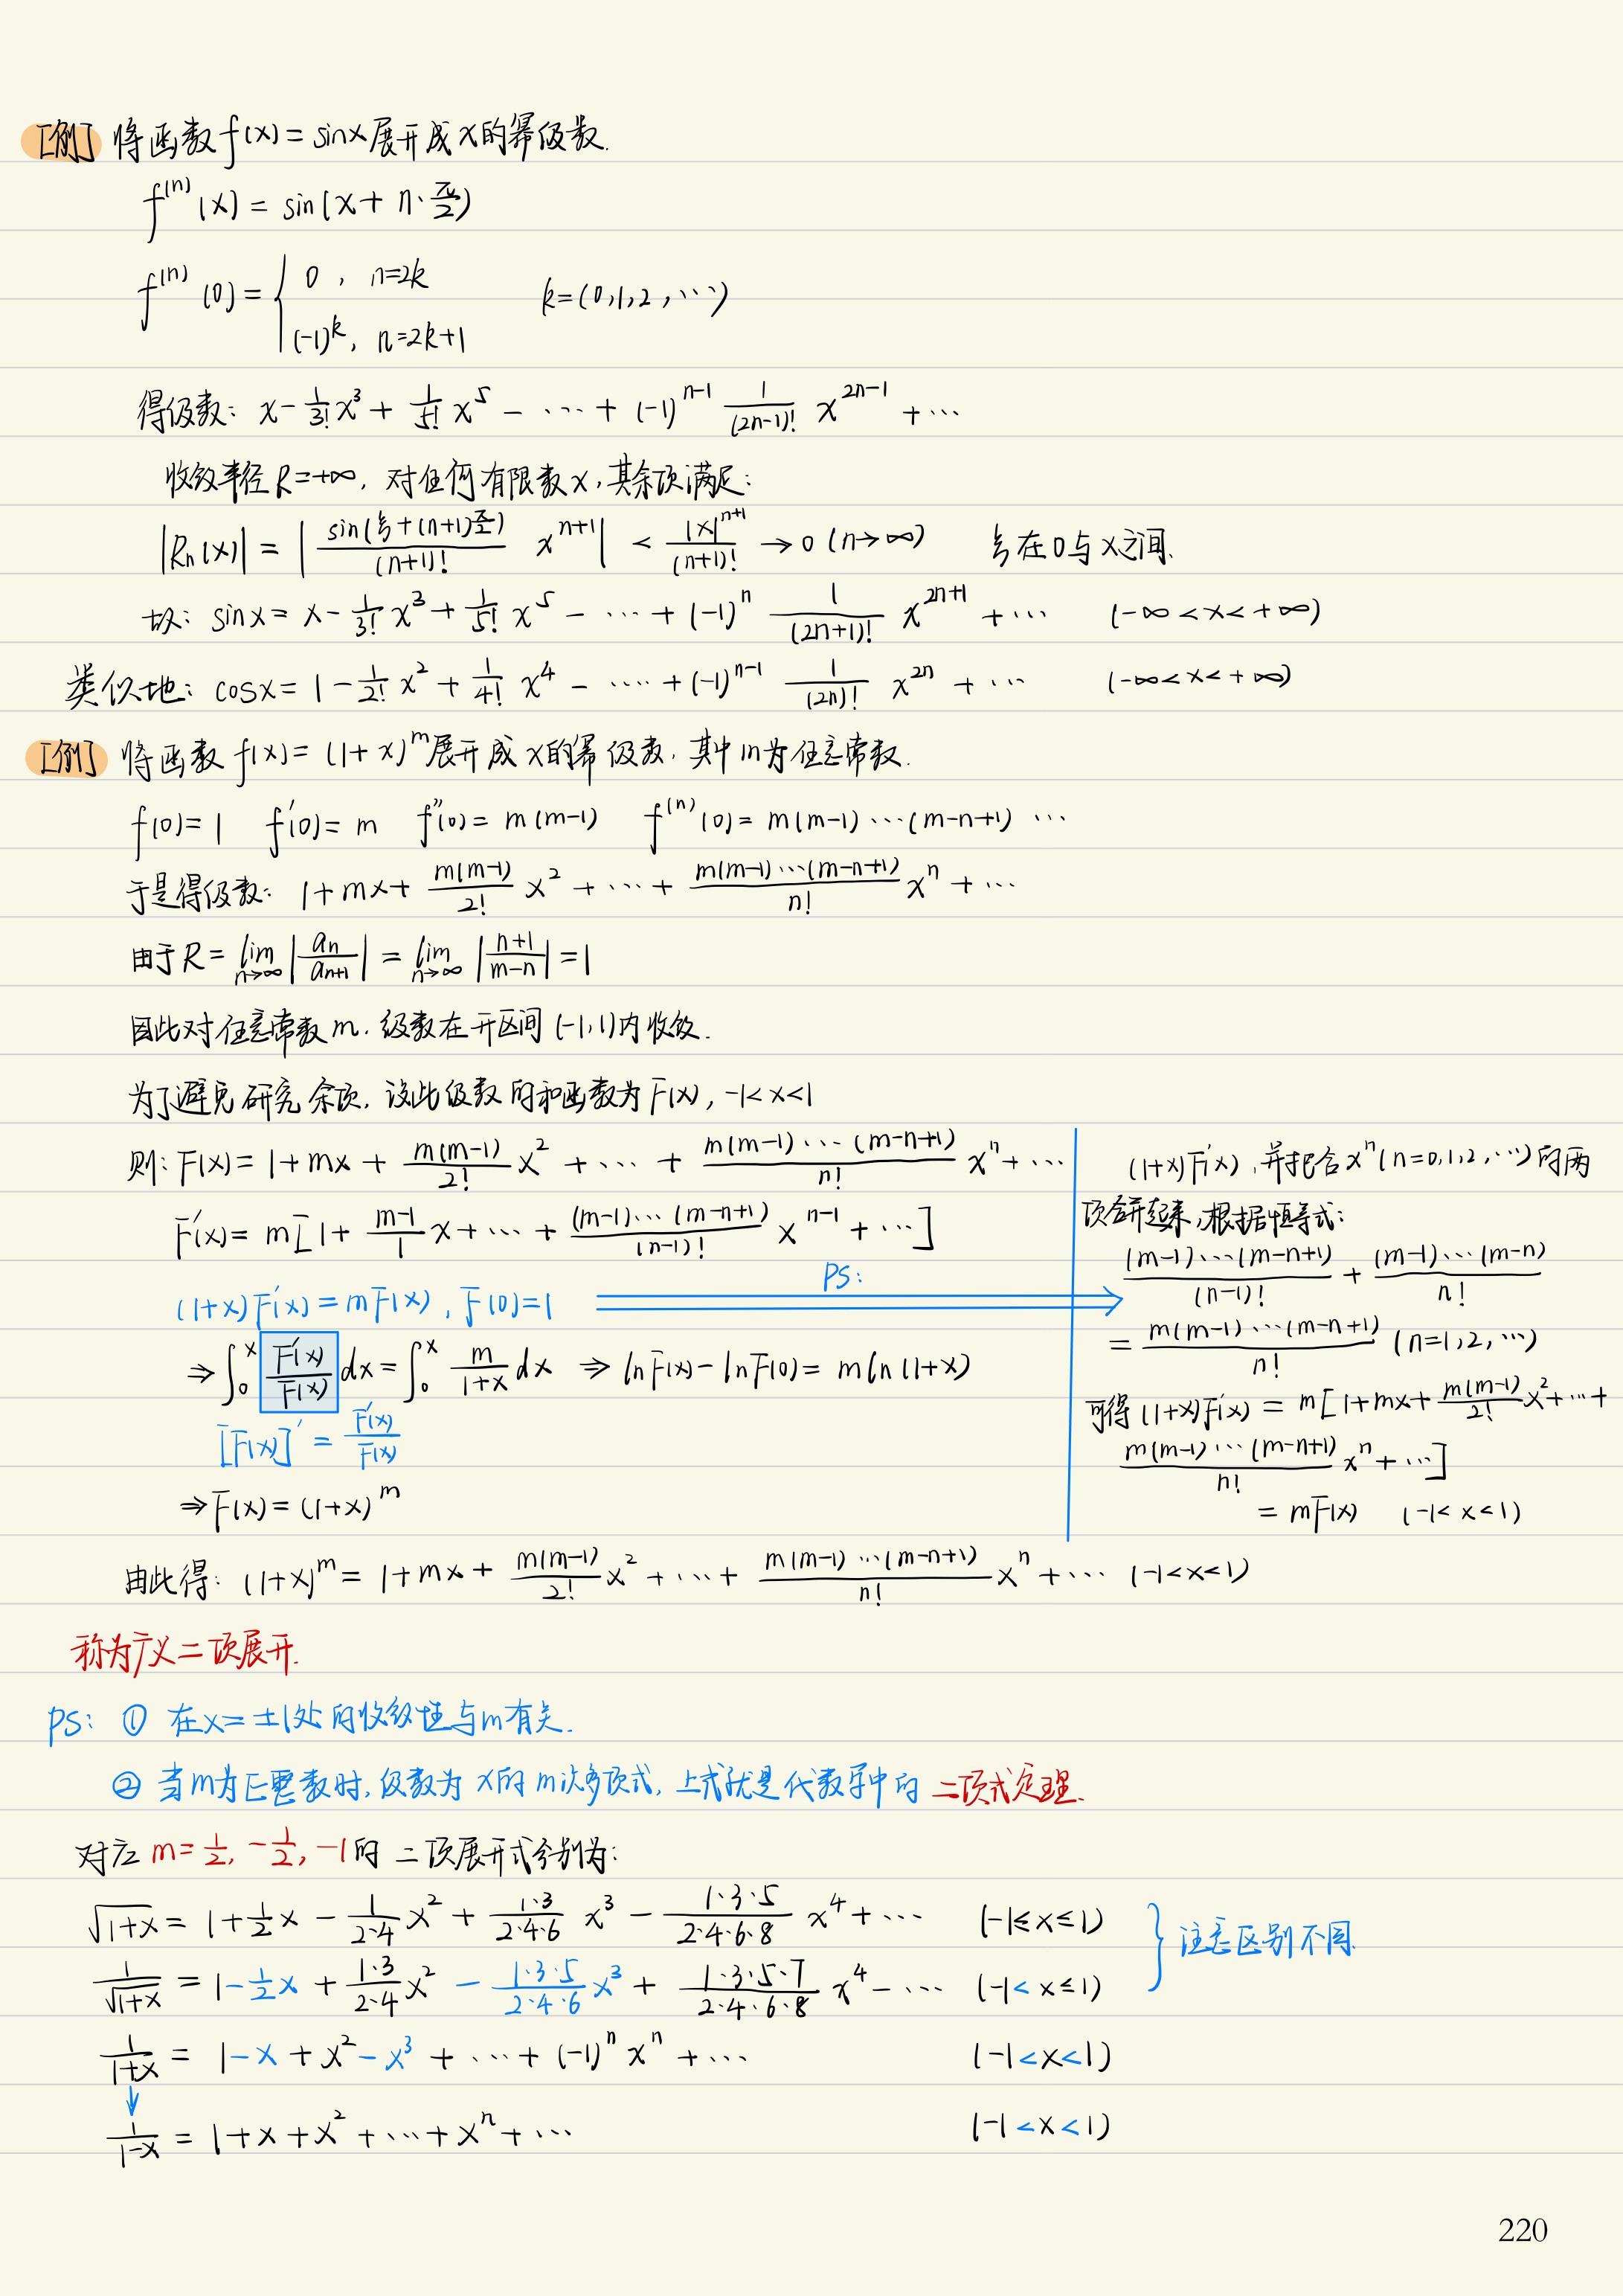 [例] 将函数 f(x) = sinx 展开成 x 的幂级数.
f⁽ⁿ⁾(x) = sin(x + n·π/2)
f⁽ⁿ⁾(0) = { 0 , n=2k
(-1)ᵏ, n=2k+1 k=(0,1,2,…)
得级数: x - 1/3! x³ + 1/5! x⁵ - … + (-1)ⁿ⁻¹ 1/(2n-1)! x²ⁿ⁻¹ + …
收敛半径 R=+∞, 对任何有限数 x, 其余项满足:
|Rn(x)| = | sin(ξ+(n+1)π/2)/(n+1)! xⁿ⁺¹ | < |x|ⁿ⁺¹/(n+1)! → 0 (n→∞) ξ在0与x之间.
故: sinx = x - 1/3! x³ + 1/5! x⁵ - … + (-1)ⁿ 1/(2n+1)! x²ⁿ⁺¹ + … (-∞<x<+∞)
类似地: cosx = 1 - 1/2! x² + 1/4! x⁴ - … + (-1)ⁿ⁻¹ 1/(2n)! x²ⁿ + … (-∞<x<+∞)
[例] 将函数 f(x) = (1+x)ᵐ 展开成 x 的幂级数, 其中 m 为任意常数.
f(0)=1 f′(0)=m f″(0)=m(m-1) f⁽ⁿ⁾(0)=m(m-1)…(m-n+1) …
于是得级数: 1+mx+ m(m-1)/2! x² + … + m(m-1)…(m-n+1)/n! xⁿ + …
由于 R = lim n→∞ |an/an+1| = lim n→∞ |(n+1)/(m-n)| = 1
因此对任意常数 m, 级数在开区间 (-1,1) 内收敛.
为了避免研究余项, 设此级数的和函数为 F(x), -1<x<1
则: F(x) = 1+mx + m(m-1)/2! x² + … + m(m-1)…(m-n+1)/n! xⁿ + …
F′(x) = m[1 + (m-1)/1 x + … + (m-1)…(m-n+1)/(n-1)! xⁿ⁻¹ + …]
(1+x)F′(x) = mF(x), F(0)=1 PS:
⇒ ∫₀ˣ F′(x)/F(x) dx = ∫₀ˣ m/(1+x) dx ⇒ lnF(x) - lnF(0) = mln(1+x)
[F(x)]′ = F′(x)/F(x)
⇒ F(x) = (1+x)ᵐ
(1+x)F′(x), 并把含 xⁿ(n=0,1,2,…) 的两
项合并起来, 根据恒等式:
(m-1)…(m-n+1)/(n-1)! + (m-1)…(m-n)/n!
= m(m-1)…(m-n+1)/n! (n=1,2,…)
可得 (1+x)F′(x) = m[1+mx+ m(m-1)/2! x²+…+
m(m-1)…(m-n+1)/n! xⁿ + …]
= mF(x) (-1<x<1)
由此得: (1+x)ᵐ = 1+mx+ m(m-1)/2! x² + … + m(m-1)…(m-n+1)/n! xⁿ + … (-1<x<1)
称为广义二项展开.
PS: ① 在 x=±1 处的收敛性与 m 有关.
② 当 m 为正整数时, 级数为 x 的 m 次多项式, 上式就是代数学中的 二项式定理.
对应 m=1/2, -1/2, -1 的 二项展开式分别为:
√(1+x) = 1 + 1/2 x - 1/(2·4) x² + (1·3)/(2·4·6) x³ - (1·3·5)/(2·4·6·8) x⁴ + … (-1≤x≤1)
1/√(1+x) = 1 - 1/2 x + (1·3)/(2·4) x² - (1·3·5)/(2·4·6) x³ + (1·3·5·7)/(2·4·6·8) x⁴ - … (-1<x≤1)
} 注意区别不同.
1/(1+x) = 1 - x + x² - x³ + … + (-1)ⁿ xⁿ + … (-1<x<1)
↓
1/(1-x) = 1+x+x²+…+xⁿ+… (-1<x<1)
220